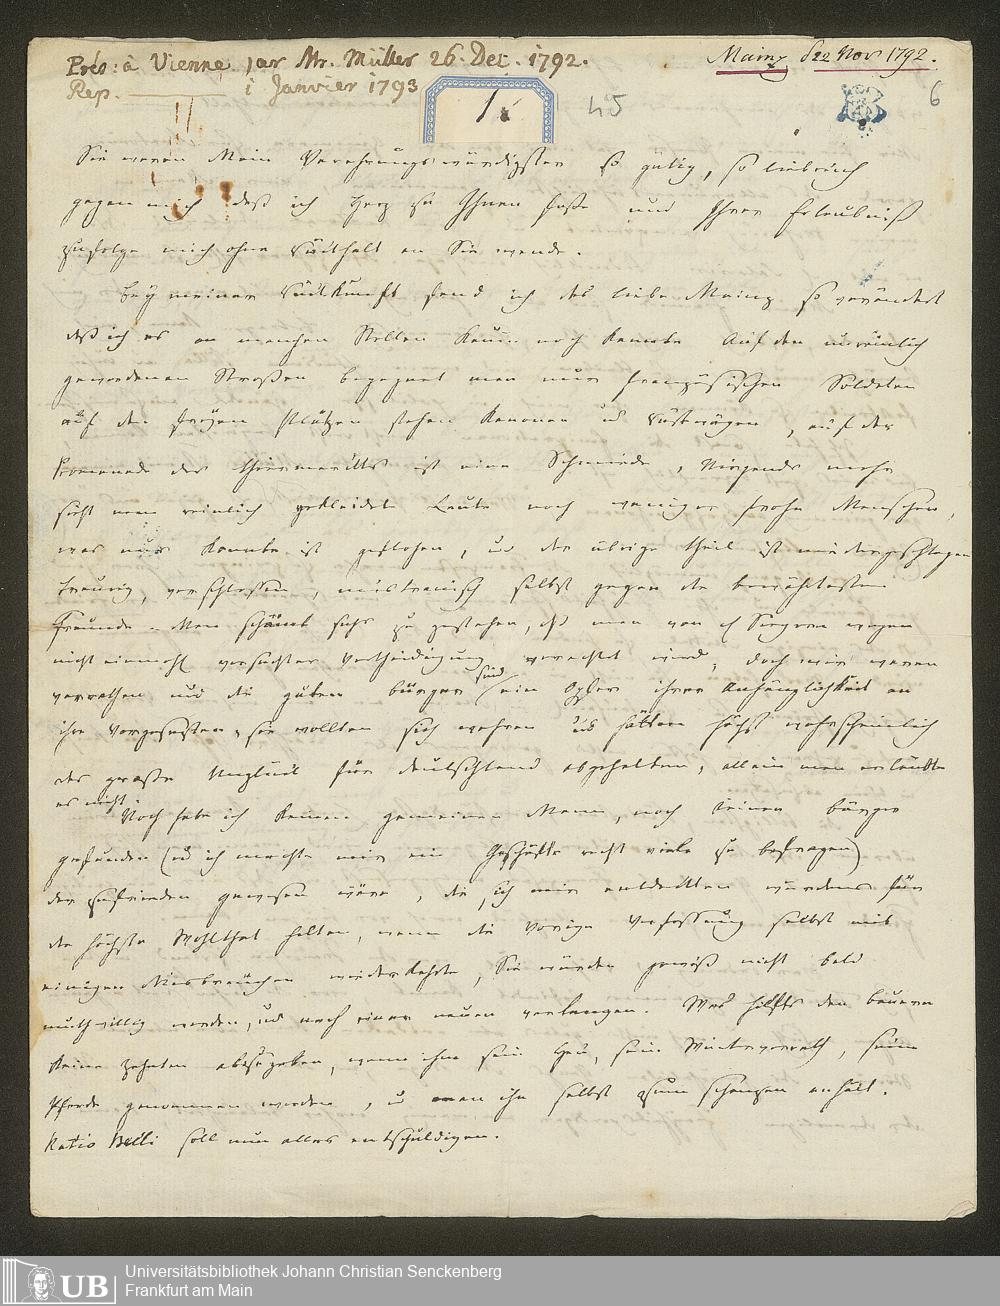 Prés: à Vienne par Mr. Müller 26. Dec. 1792.
Rep. 1 Janvier 1793
Mainz d 22 Nov 1792.
1.
45
6
Sie waren Mein Verehrungswürdigster so gütig, so liebreich
gegen mich daß ich Herz zu Ihnen faße und Ihrer Erlaubniß
zufolge mich ohne Rückhalt an Sie wende.
Bey meiner Rückkunft fand ich das liebe Mainz so verändert
daß ich es an manchen Stellen kaum noch kannte Auf den unreinlich
gewordenen Straßen begegnet man nur französischen Soldaten
auf den freyen Plätzen stehen Kanonen u Rüstwägen, auf der
Promenade des Thiermarkts ist eine Schmiede, Nirgends mehr
sieht man reinlich gekleidete Leute noch weniger frohe Menschen,
was nur konnte ist geflohen, u der übrige Theil ist niedergeschlagen
traurig, verschlossen, mistrauisch selbst gegen die bewährtesten
Freunde. Man schämt sichs zu gestehen, daß man von wegen
nicht einmahl versuchter Vertheidigung verachtet wird, doch wir waren
verrathen und die guten Bürger sind ein Opfer ihrer Anhänglichkeit an
ihre Vorgesetzten, sie wollten sich wehren und hätten höchst wahrscheinlich
das große Unglück für Deutschland abgehalten, allein man erlaubte
es nicht.
Noch habe ich keinen gemeinen Mann, noch keinen Bürger
gefunden (u ich machte mir ein Geschäfte recht viele zu befragen)
der zufrieden gewesen wäre, die, sich mir entdeckten würdens für
die höchste Wohlthat halten, wenn die vorige Verfassung selbst mit
einigen Misbräuchen wiederkehrte, Sie würden gewiß nicht bald
muthwillig werden, und nach einer neuen verlangen. Was hilfts den Bauern
keine Zehnten abzugeben, wenn ihm sein Heu, sein Wintervorrath, seine
Pferde genommen werden, u man ihn selbst zum schanzen anhält.
Ratio Belli soll nun alles entschuldigen.
UB
Universitätsbibliothek Johann Christian Senckenberg
Frankfurt am Main